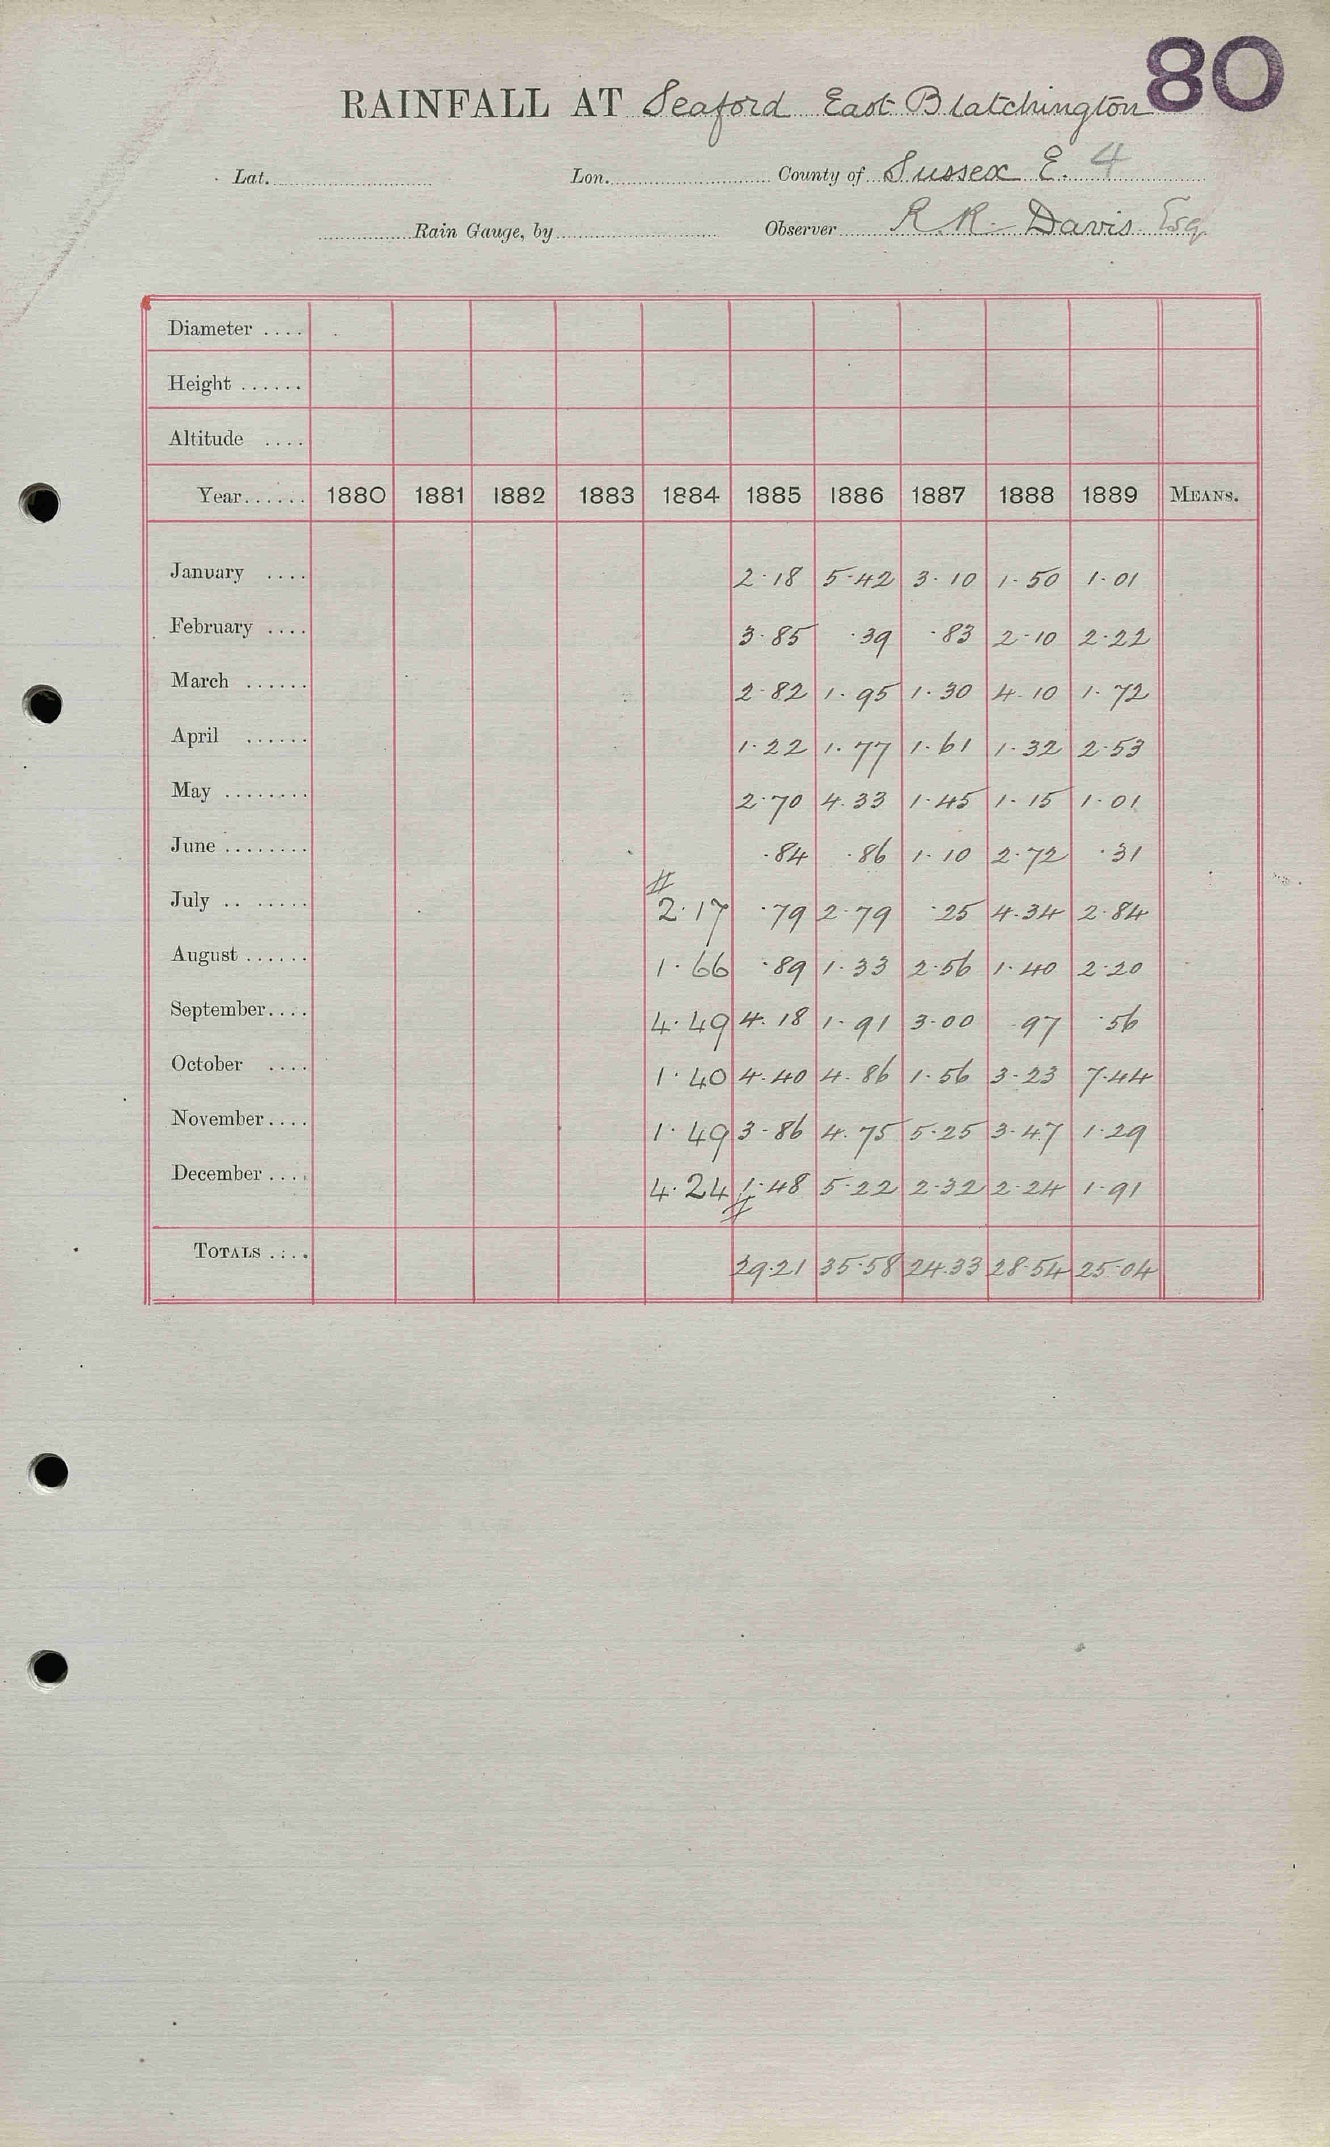 80
RAINFALL AT Seaford East Blatchington
Lat. Lon. County of Sussex E. 4
Rain Gauge, by Observer R. R. Davis Esq
Diameter ....
Height ......
Altitude ....
Year...... 1880 1881 1882 1883 1884 1885 1886 1887 1888 1889 MEANS.
January .... 2.18 5.42 3.10 1.50 1.01
February .... 3.85 .39 .83 2.10 2.22
March ...... 2.82 1.95 1.30 4.10 1.72
April ...... 1.22 1.77 1.61 1.32 2.53
May ........ 2.70 4.33 1.45 1.15 1.01
June ........ .84 .86 1.10 2.72 .31
#
July .. ...... 2.17 .79 2.79 .25 4.34 2.84
August ...... 1.66 .89 1.33 2.56 1.40 2.20
September.... 4.49 4.18 1.91 3.00 .97 .56
October .... 1.40 4.40 4.86 1.56 3.23 7.44
November.... 1.49 3.86 4.75 5.25 3.47 1.29
December .... 4.24 1.48 5.22 2.32 2.24 1.91
#
TOTALS .... 29.21 35.58 24.33 28.54 25.04